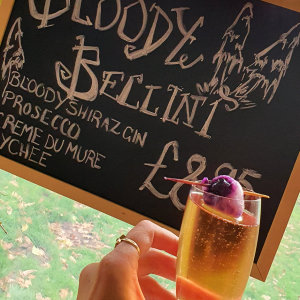 BLOODY
BELLINI
BLOODY SHIRAZ GIN
PROSECCO
CREME DU MURE
LYCHEE
£8.95